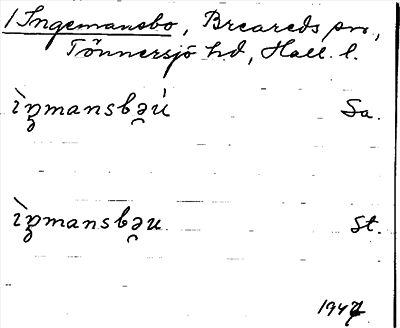 /Ingemansbo, Breareds sn,
Tönnersjö hd, Hall. l.
ìŋmansbə̯ù Sa.
ìŋmansbə̯u. St.
1947